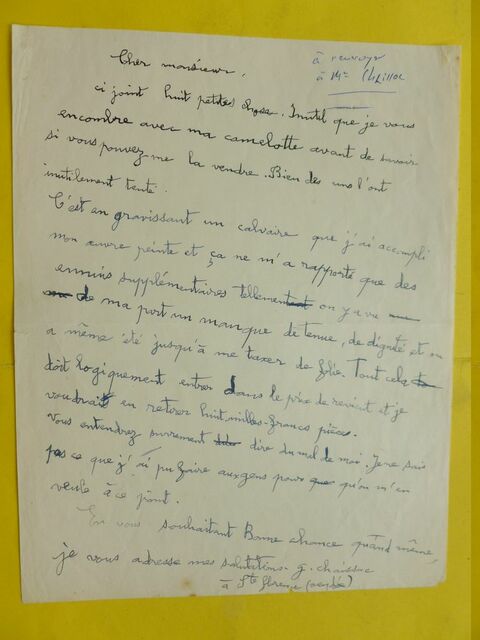 Cher monsieur,
à renvoyer
à Mr
ci joint huit petites chose. Inutil que je vous
encombre avec ma camelotte avant de savoir
si vous pouvez-me la vendre. Bien des uns l'ont
inutilement tenté.
C'est en gravissant un calvaire que j'ai accompli
mon œuvre peinte et ça ne m'a rapporté que des
ennuis supplémentaires tellement on y a vu
de ma part un manque de tenue, de dignité et on
a même été jusqu'à me taxer de folie. Tout cela
doit logiquement entrer dans le prix de revient et je
voudrait en retirer huit milles francs pièce.
Vous entendrez surement dire du mal de moi. Je ne sais
pas ce que j'ai pu faire aux gens pour qu'on m'en
veule à ce point.
En vous souhaitant Bonne chance quand même,
je vous adresse mes salutitions. g. chaissac
à Ste florence (vendée)